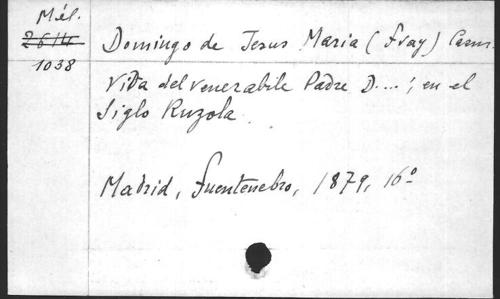 Mél.
2614
1038
Domingo de Jesus Maria (Fray) Carm.
Vida del venerabile Padre D....; en el
siglo Ruzola
Madrid, Fuentenebro, 1879, 16º